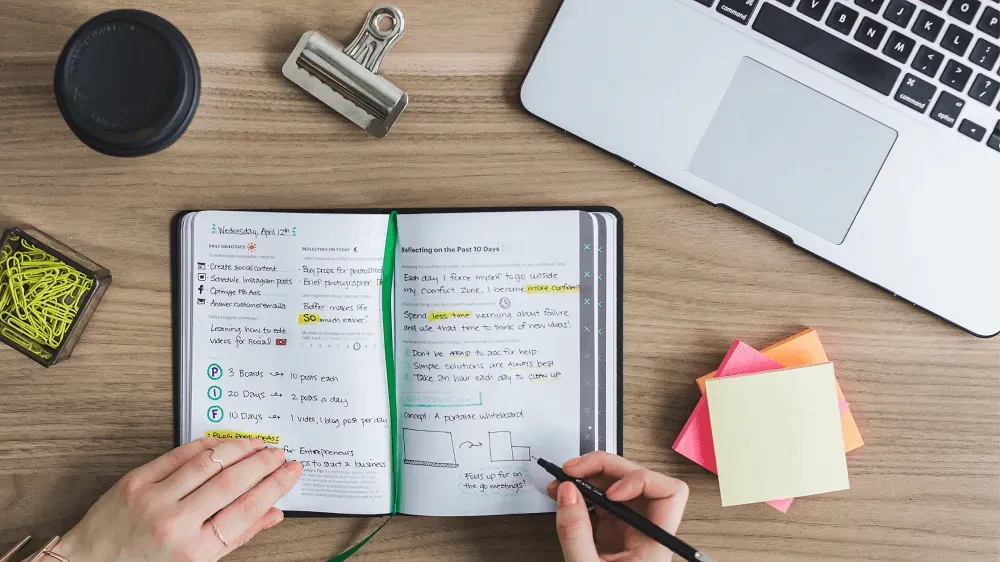 Wednesday, April 12th
DAILY OBJECTIVES
Create social content
Schedule Instagram posts
Optimize FB Ads
Answer customer emails
Today's biggest challenge
Learning how to edit
videos for Social
REFLECTING ON TODAY
Buy props for photoshoot
Brief photographer
Buffer makes life
SO much easier!
P 3 Boards → 10 posts each
I 20 Days → 2 posts a day
F 10 Days → 1 video, 1 blog post per day
BLOG POST IDEAS
for Entrepreneurs
ps to start a business
Reflecting on the Past 10 Days
Each day I force myself to go outside
my comfort zone, I become more confident
Spend less time worrying about failure
and use that time to think of new ideas!
Don't be AFRAID to ask for help
Simple solutions are ALWAYS BEST
Take an hour each day to CLEAN UP
Concept: A portable whiteboard
Folds up for on
the go meetings!
command
V
B
N
M
<
,
>
.
?
/
O
P
command
option